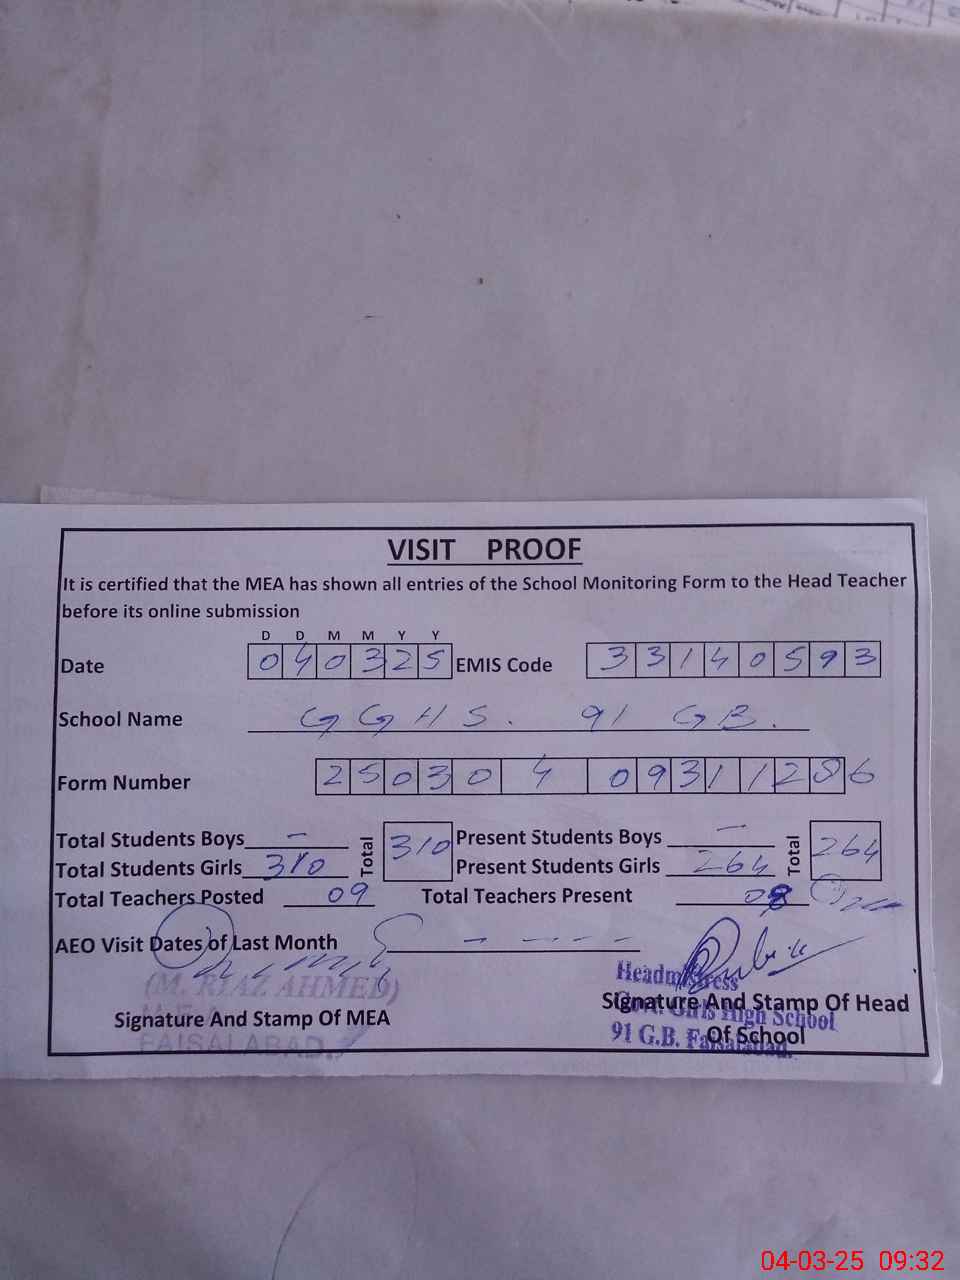 VISIT PROOF
It is certified that the MEA has shown all entries of the School Monitoring Form to the Head Teacher
before its online submission
D D M M Y Y
Date 040325 EMIS Code 33140593
School Name GGHS. 91 GB.
Form Number 25030 4 0931 1286
Total Students Boys - Total 310 Present Students Boys - Total 264
Total Students Girls 310 Present Students Girls 264
Total Teachers Posted 09 Total Teachers Present 08
AEO Visit Dates of Last Month - - - - -
(M. RIAZ AHMED)
Signature And Stamp Of MEA
FAISALABAD.
Headmistress
Signature And Stamp Of Head
Govt. Girls High School
Of School
91 G.B. Faisalabad.
04-03-25 09:32